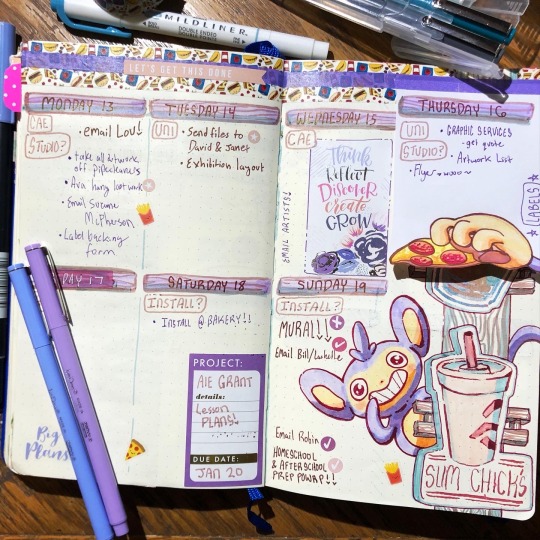 MILDLINER
DOUBLE ENDED
LET'S GET THIS DONE
MONDAY 13
CAE
• email Lou!
STUDIO?
• take all artwork
off pipecleaners
• Email Suzane
McPherson
• Label backing
form
TUESDAY 14
UNI
• Send files to
David & Janet
• Exhibition layout
WEDNESDAY 15
CAE
EMAIL ARTISTS!
Think
Reflect
Discover
create
GROW
THURSDAY 16
UNI
• GRAPHIC SERVICES
- get quote
STUDIO?
• Artwork List
• Flyer
LABELS!
DAY 17
Big
Plans
SATURDAY 18
INSTALL?
• INSTALL @ BAKERY!!
PROJECT:
AIE GRANT
details:
Lesson
PLANS!
DUE DATE:
JAN 20
SUNDAY 19
INSTALL?
MURAL!!
Email Robin
HOMESCHOOL
& AFTERSCHOOL
PREP POWRP!!
SLIM CHICKS